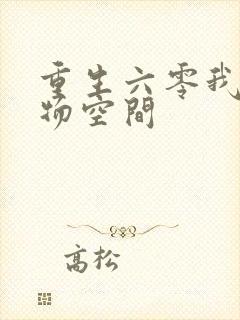 重生六零我
物空間
高松